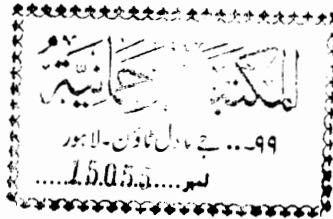 المکتبة الرحمانیة
۹۹... جے ماڈل ٹاؤن - لاہور
نمبر.....15055.....